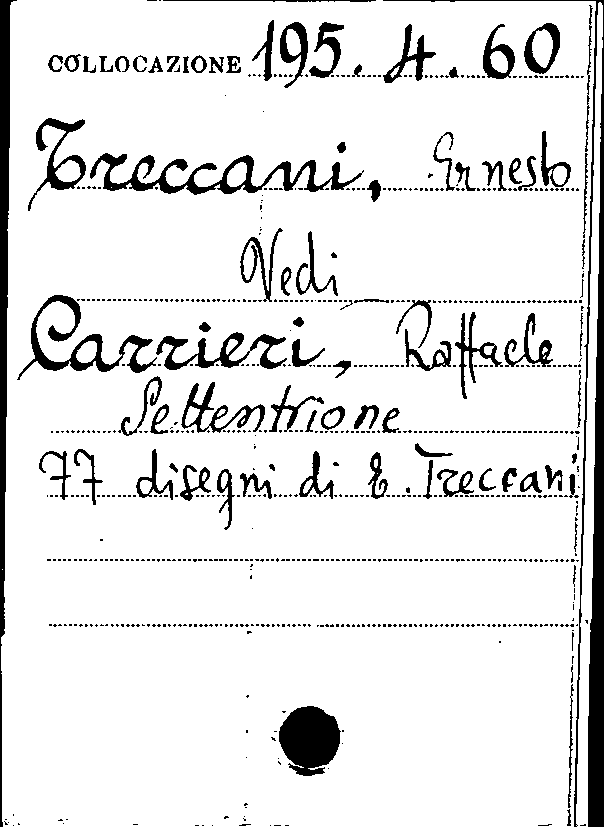 COLLOCAZIONE 195.4.60
Treccani, Ernesto
Vedi
Carrieri, Raffaele
Settentrione
77 disegni di E. Treccani